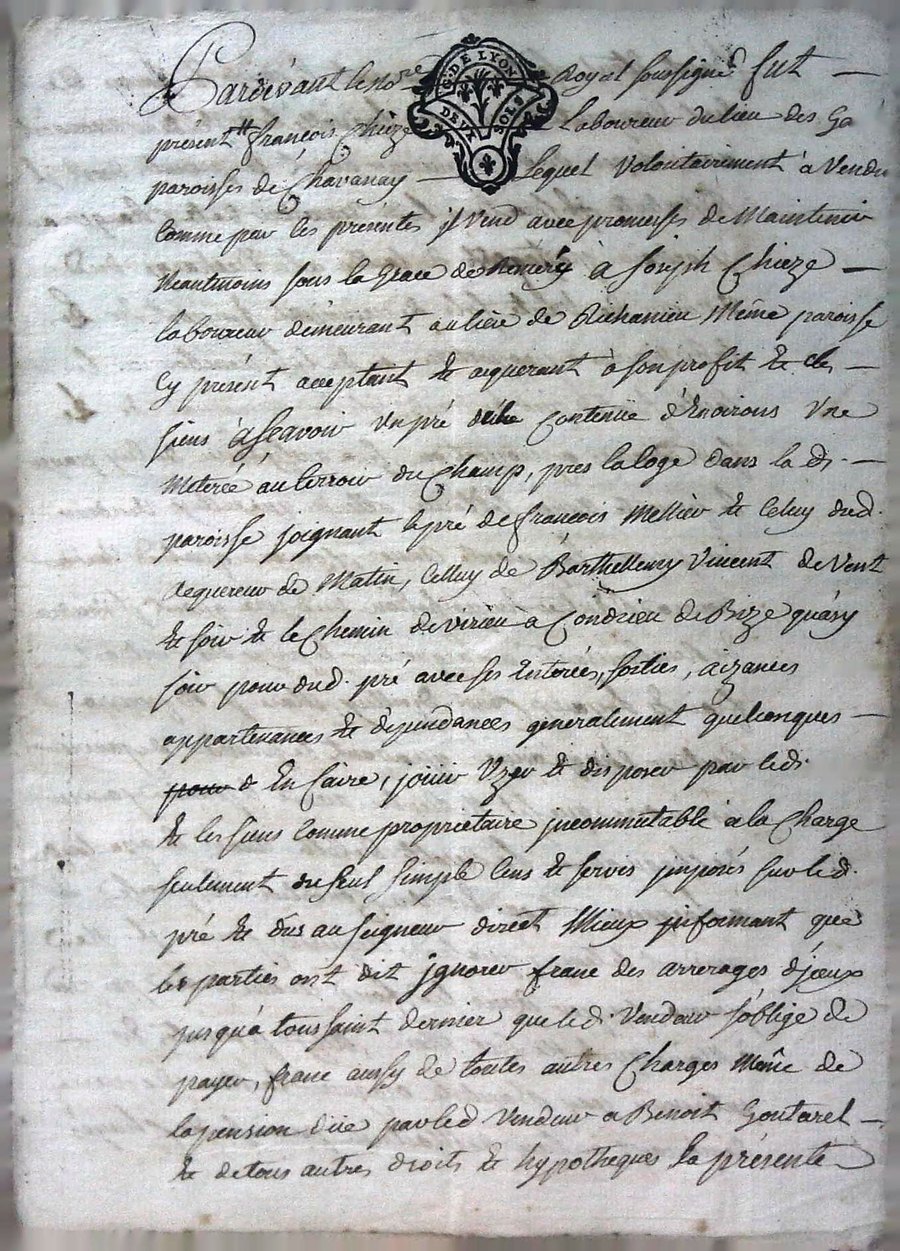 G. DE LYON
DEUX SOLS
Pardevant le nore Royal soussigné fut
présent tt françois Chieze Laboureur du lieu des Go
paroisses de Chavanay Lequel Volontairement à Vendu
comme par les présentes jl Vend avec promesses de Maintenir
Neantmoins sous la Grace de Remeré à Joseph Chieze
laboureur demeurant au lieu de Richanieu Même paroisse
Cy présent acceptant et aquerant à son profit et des
siens àsçavoir Vn pré de la Contenüe d'Environs Vne
Meterée au terroir du Champ, pres la loge dans la d.
paroisse joignant le pré de françois Mellier et Celuy dud.
aquereur de Matin, Celluy de Barthellemy Vincent de Vent
et soir et le Chemin de virieu à Condrieu de Bize quàsy
soir pour dud. pré avec ses Entrées, sorties, aizances
appartenances et dépendances généralement quelconques
pour d En faire, joüir Vzer et disposer par led.
et les siens comme propriétaire jncommutable a la Charge
seulement du seul simple Cens et servis jmposés sur led.
pré et dus au seigneur direct Mieux jnformant que
les parties ont dit jgnorer franc des arrerages d'jceux
jusqu'a toussaint dernier que led. Vendeur s'oblige de
payer, franc aussy de toutes autres Charges Même de
la pension düe par led Vendeur a Benoit Goutarel
et de tous autres droits et hypotheques la présente